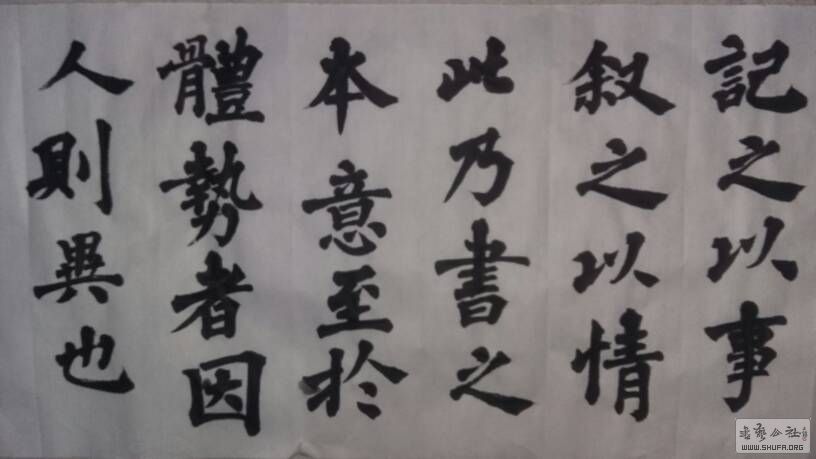 記之以事
叙之以情
此乃書之
本意至於
體勢者因
人則異也
WWW.SHUFA.ORG